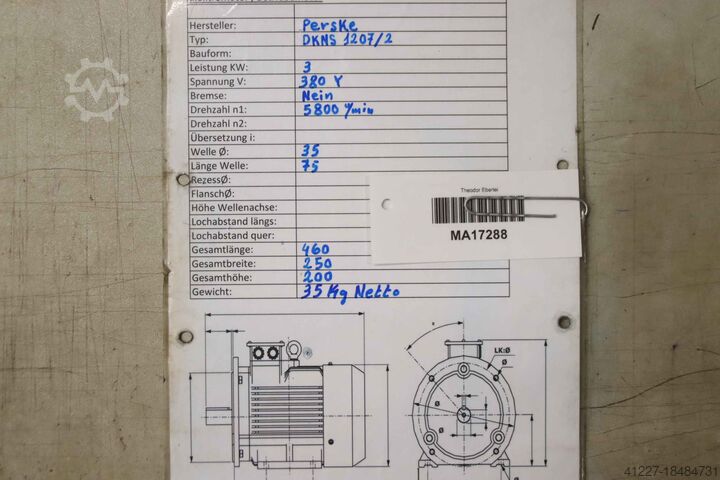 Hersteller: Perske
Typ: DKNS 1207/2
Bauform:
Leistung KW: 3
Spannung V: 380 Y
Bremse: Nein
Drehzahl n1: 5800 1/min
Drehzahl n2:
Übersetzung i:
Welle Ø: 35
Länge Welle: 75
RezessØ:
FlanschØ:
Höhe Wellenachse:
Lochabstand längs:
Lochabstand quer:
Gesamtlänge: 460
Gesamtbreite: 250
Gesamthöhe: 200
Gewicht: 35 Kg Netto
Theodor Eberlei
MA17288
LK:Ø
Ø
Ø
Ø
Ø
Machineseeker
41227-18484731